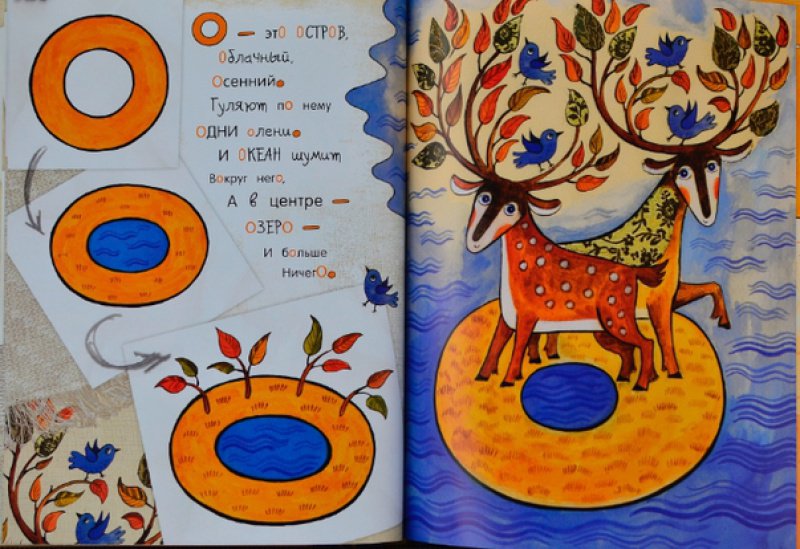 О — этО ОСТРОВ,
Облачный,
Осенний.
Гуляют по нему
ОДНИ олени.
И ОКЕАН шумит
Вокруг него,
А в центре —
ОЗЕРО —
И больше
НичегО.